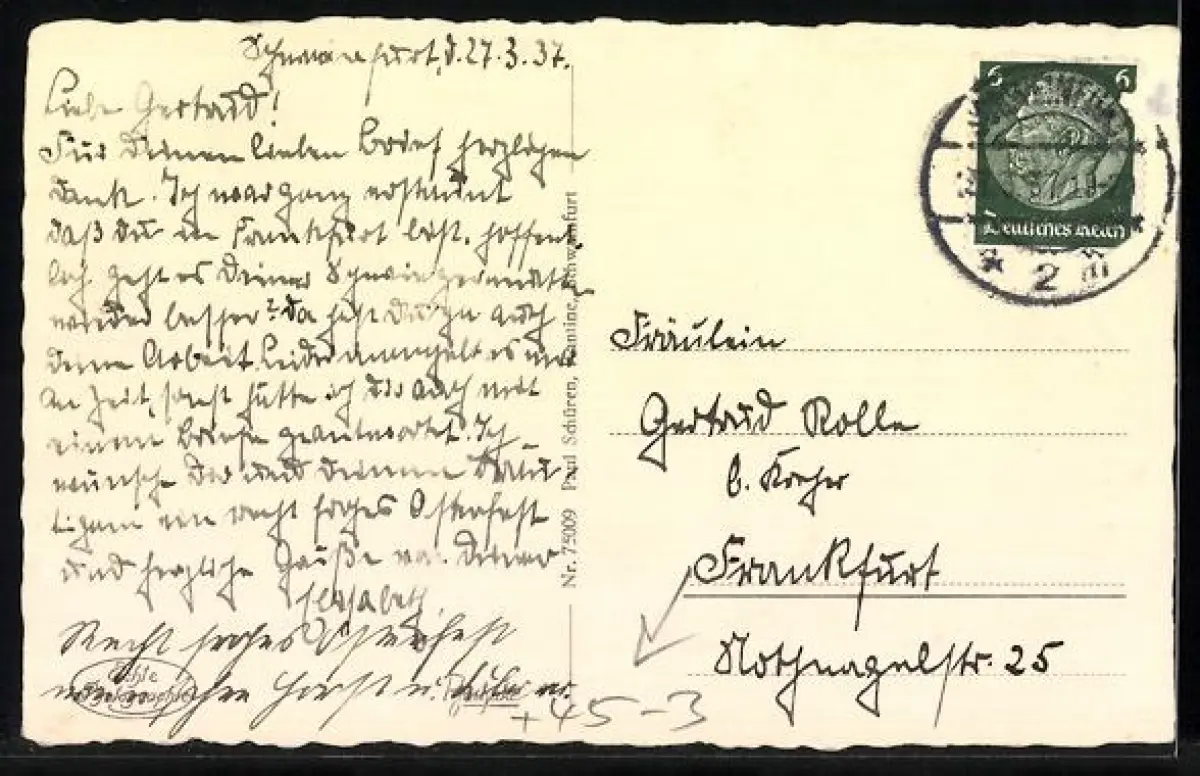 Schweinfurt, d. 27.3.37.
Liebe Gertraud!
Für Deinen lieben Brief herzlichen
Dank. Ich war ganz erstaunt
daß Du in Frankfurt bist. Hoffent-
lich geht es Deiner Schwiegermutter
wieder besser? Da hast Du ja auch
deine Arbeit. Leider mangelt es mir
an Zeit, sonst hätte ich dir auch mit
einem Briefe geantwortet. Ich
wünsche Dir und Deinem Bräu-
tigam ein recht frohes Osterfest
und herzliche Grüße von Deiner
Elisabeth.
Recht frohes Osterfest
wünschen Horst u.
Echte
Nr. 75009 Paul Schüren, Kantine, Schweinfurt
6 6
Deutsches Reich
* 2 m
Fräulein
Gertraud Rolle
b.
Frankfurt
Nothnagelstr. 25
+45-3